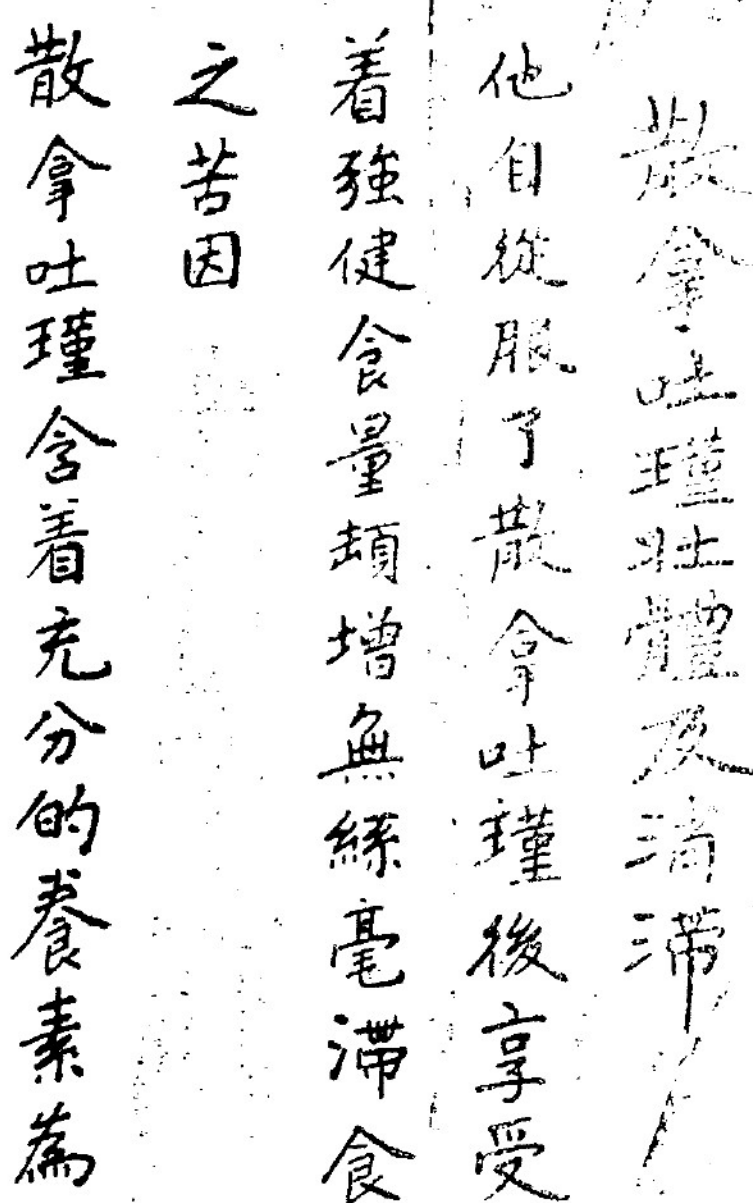 散拿吐瑾壯體及消滯
他自從服了散拿吐瑾後享受
着強健食量頡增無絲毫滯食
之苦因
散拿吐瑾含着充分的養素為